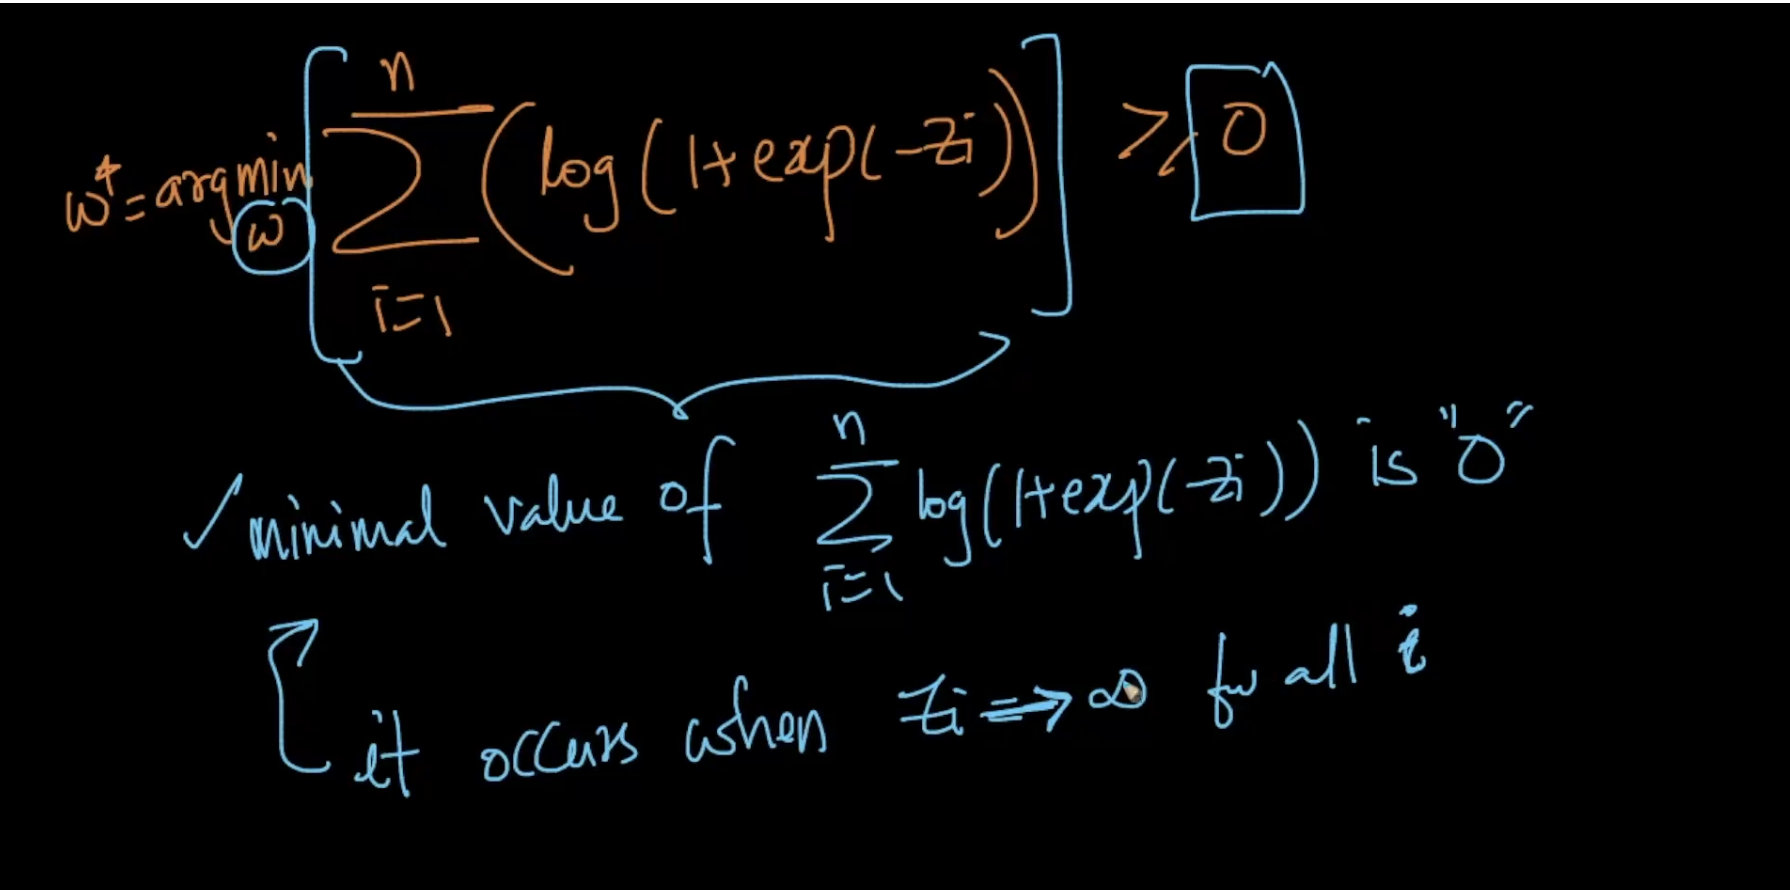 w* = argmin_w [ ∑_{i=1}^{n} ( log ( 1 + exp(-zi) ) ) ] ≥ 0
✓ minimal value of ∑_{i=1}^{n} log(1+exp(-zi)) is "0"
it occurs when zi → ∞ for all i